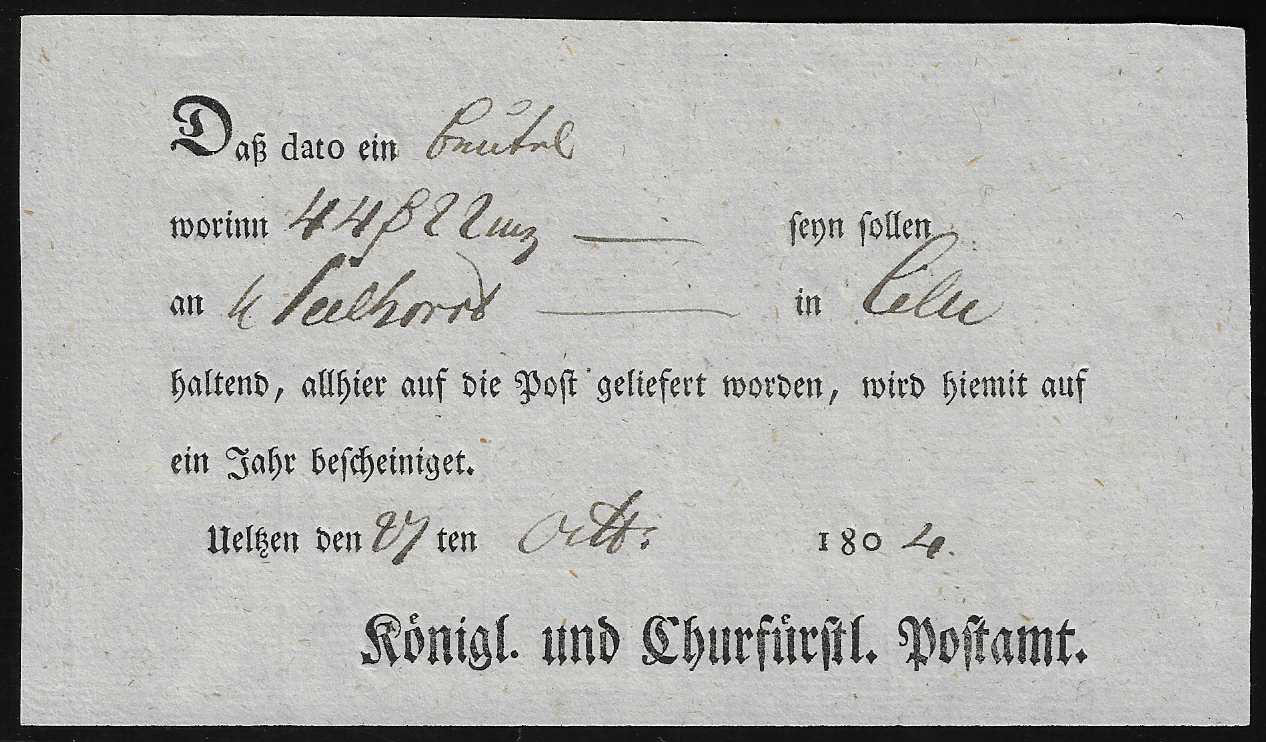 Daß dato ein Beutel
worinn 44 ₰ 22 mg seyn sollen
an in Celle
haltend, allhier auf die Post geliefert worden, wird hiemit auf
ein Jahr bescheiniget.
Ueltzen den 27 ten Octb: 1804.
Königl. und Churfürstl. Postamt.